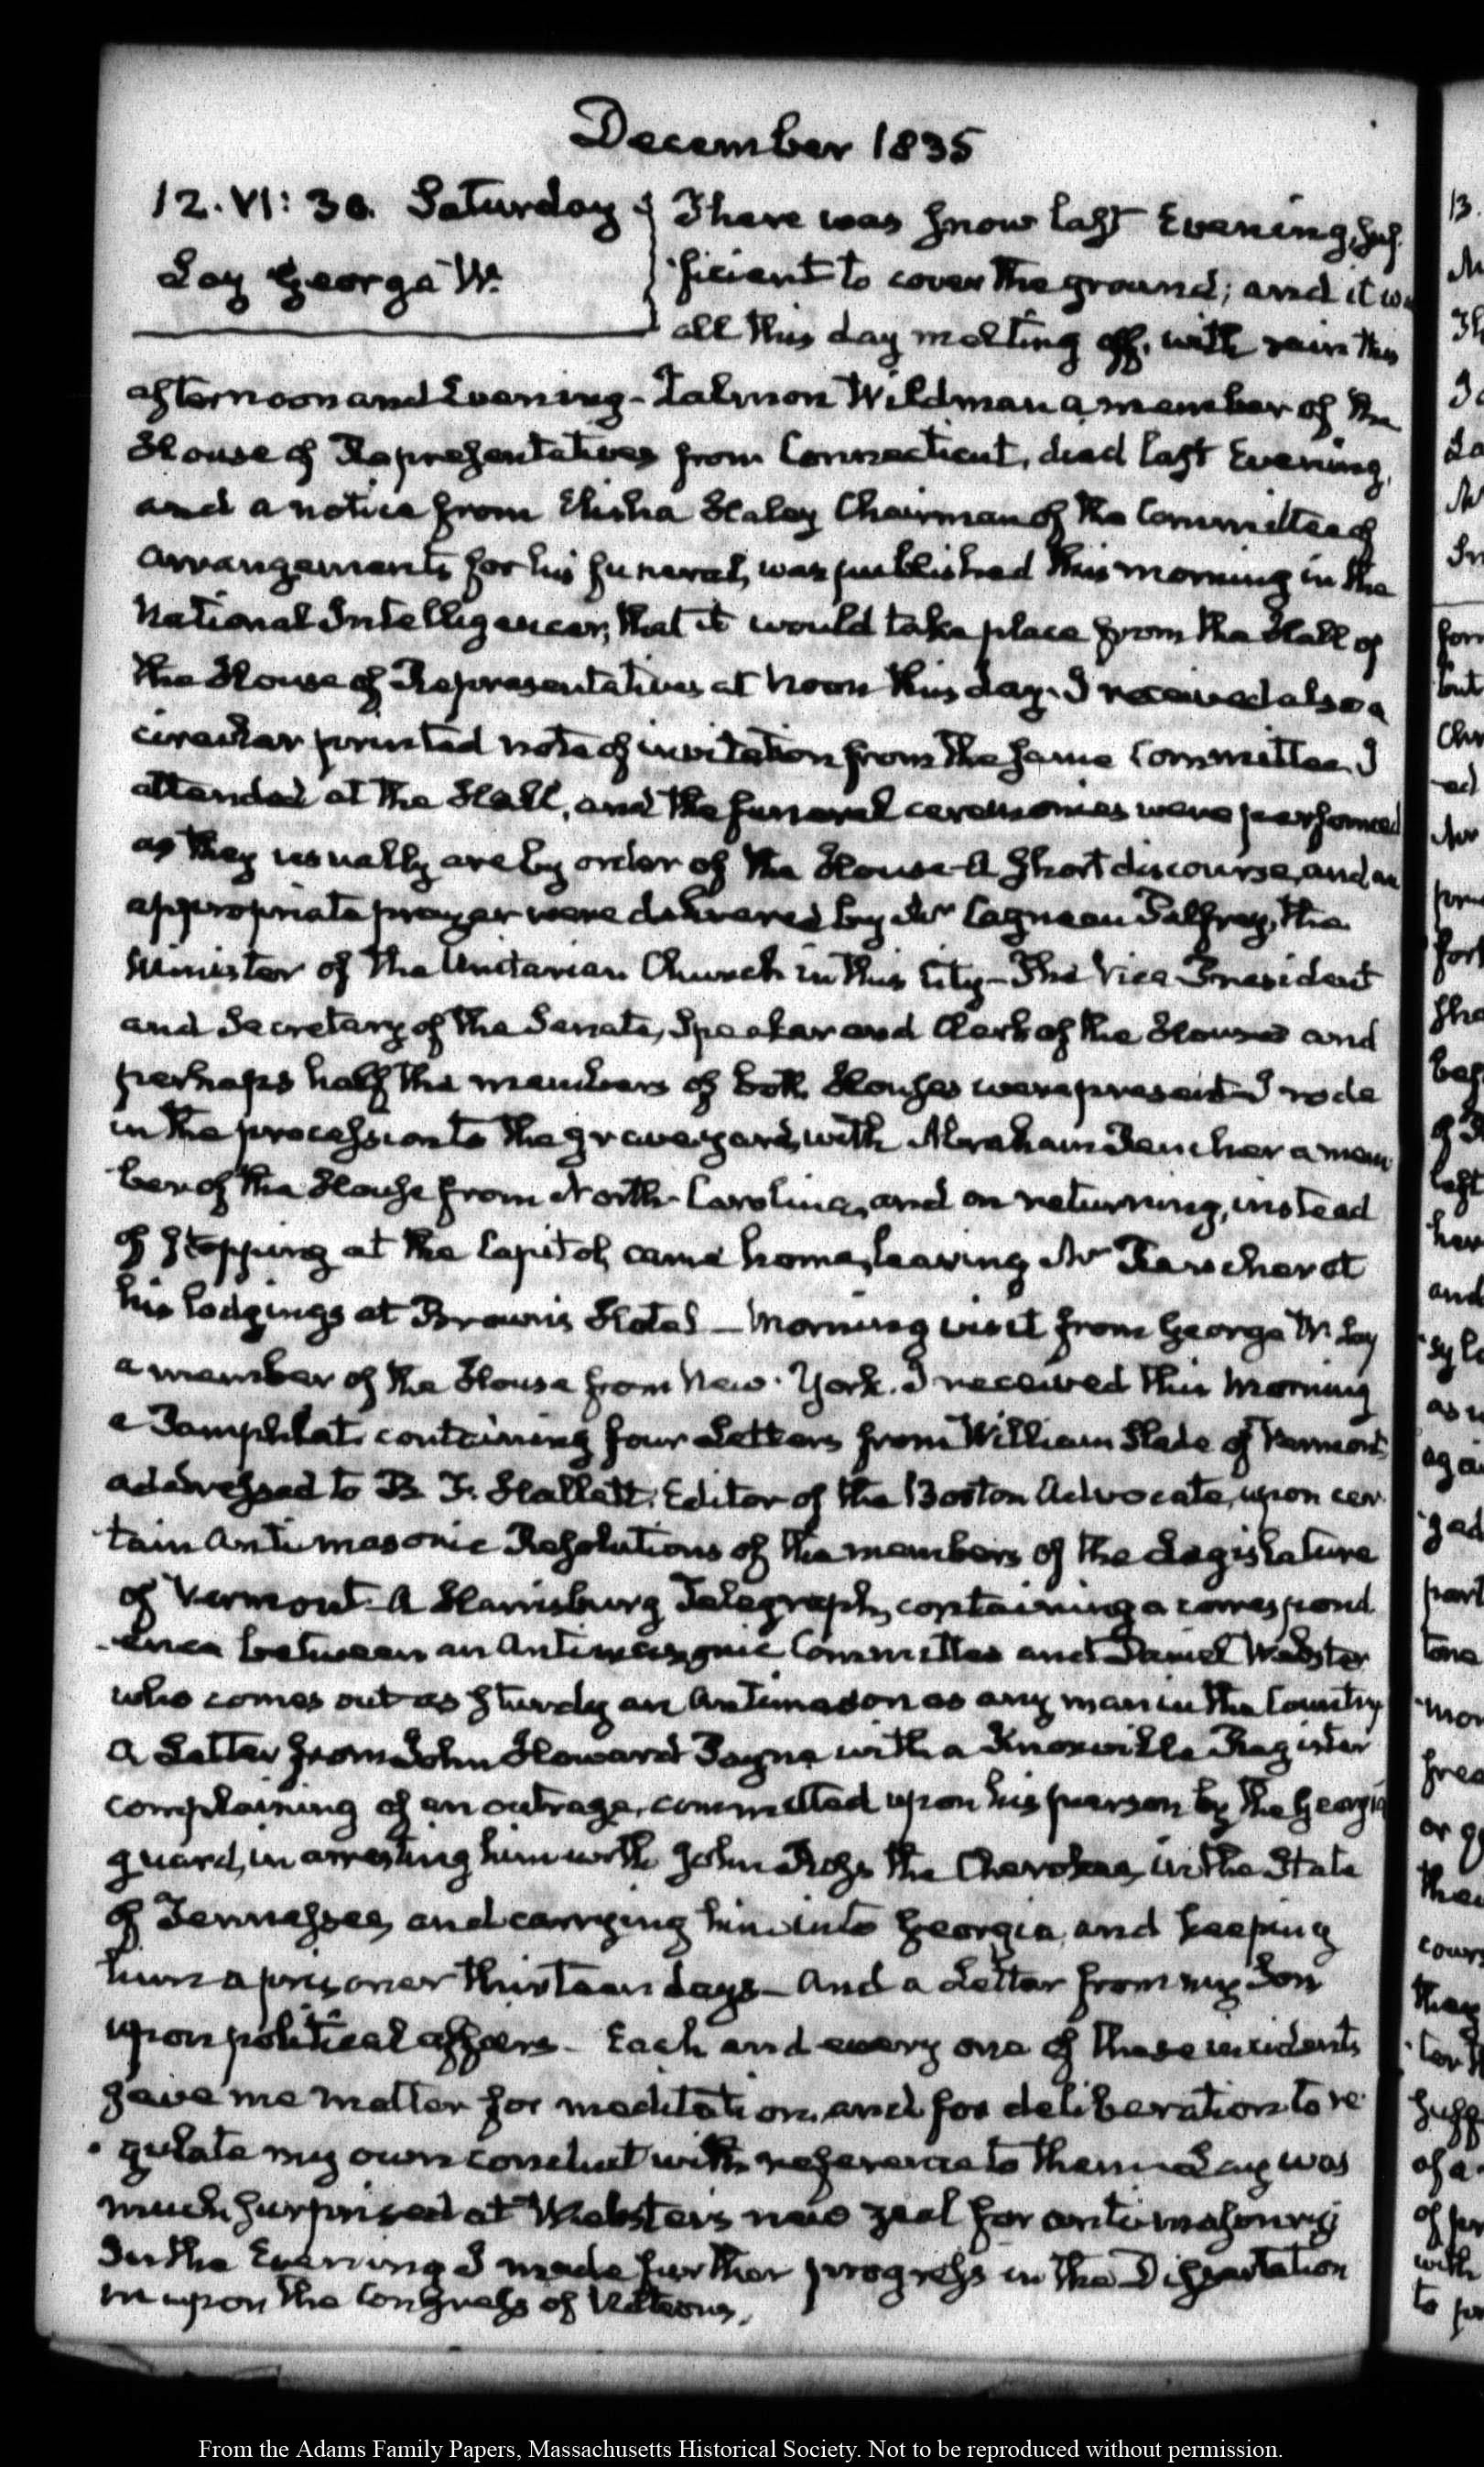 December 1835
12. VI: 30. Saturday
Lay George W.
There was snow last Evening, suf
ficient to cover the ground; and it was
all this day melting off, with rain this
afternoon and Evening - Zalmon Wildman a member of the
House of Representatives from Connecticut, died last Evening,
and a notice from Elisha Haley Chairman of the Committee of
arrangements for his funeral, was published this morning in the
National Intelligencer, that it would take place from the Hall of
the House of Representatives at Noon this day. I received also a
circular printed note of invitation from the same Committee. I
attended at the Hall, and the funeral ceremonies were performed
as they usually are by order of the House - A short discourse, and an
appropriate prayer were delivered by Mr Cazneau Palfrey, the
Minister of the Unitarian Church in this City - The Vice-President
and Secretary of the Senate, Speaker and Clerk of the House and
perhaps half the members of both Houses were present - I rode
in the procession to the graveyard, with Abraham Rencher a mem
ber of the House from North-Carolina, and on returning, instead
of stopping at the Capitol, came home, leaving Mr Rencher at
his lodgings at Brown's Hotel - Morning visit from George W. Lay
a member of the House from New-York. I received this Morning
a Pamphlet containing four Letters from William Slade of Vermont
addressed to B. F. Hallett, Editor of the Boston Advocate, upon cer
tain Antimasonic Resolutions of the members of the Legislature
of Vermont - A Harrisburg Telegraph, containing a correspond
-ence between an Antimasonic Committee and Daniel Webster
who comes out as sturdy an Antimason as any man in the Country
A Letter from John Howard Payne with a Knoxville Register
complaining of an outrage, committed upon his person by the Georgia
guard, in arresting him with John Ross the Cherokee, in the State
of Tennessee, and carrying him into Georgia, and keeping
him a prisoner thirteen days - And a Letter from my Son
upon political affairs - Each and every one of these incidents
gave me matter for meditation, and for deliberation to re
gulate my own conduct with reference to them - Lay was
much surprised at Webster's new zeal for antimasonry
In the Evening I made further progress in the Dissertation
upon the Congress of Nations,
From the Adams Family Papers, Massachusetts Historical Society. Not to be reproduced without permission.